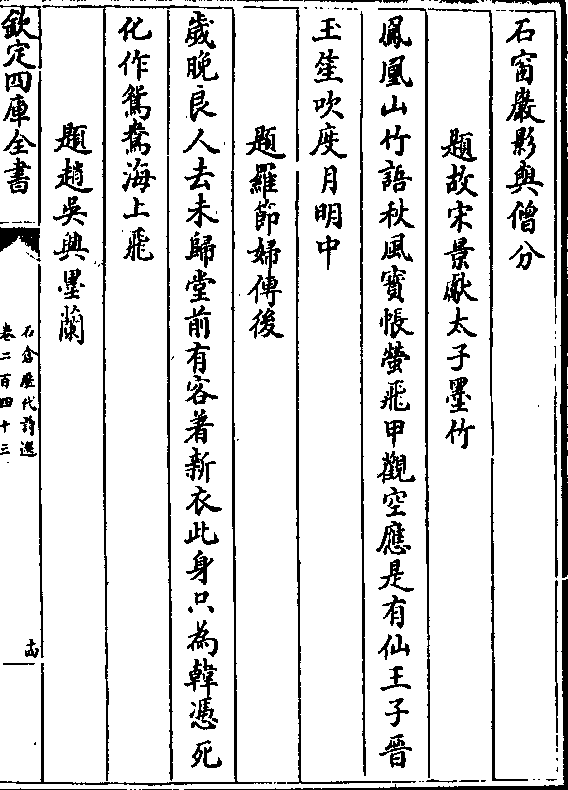 石窗巖影與僧分
題故宋景獻太子墨竹
鳳凰山竹語秋風寳帳螢飛甲觀空應是有仙王子晉
玉笙吹度月明中
題羅節婦傳後
歲晩良人去未歸堂前有客着新衣此身只為韓憑死
化作鴛鴦海上飛
題趙吳興墨蘭
欽定四庫全書
石倉歷代詩選
卷二百四十三
十四